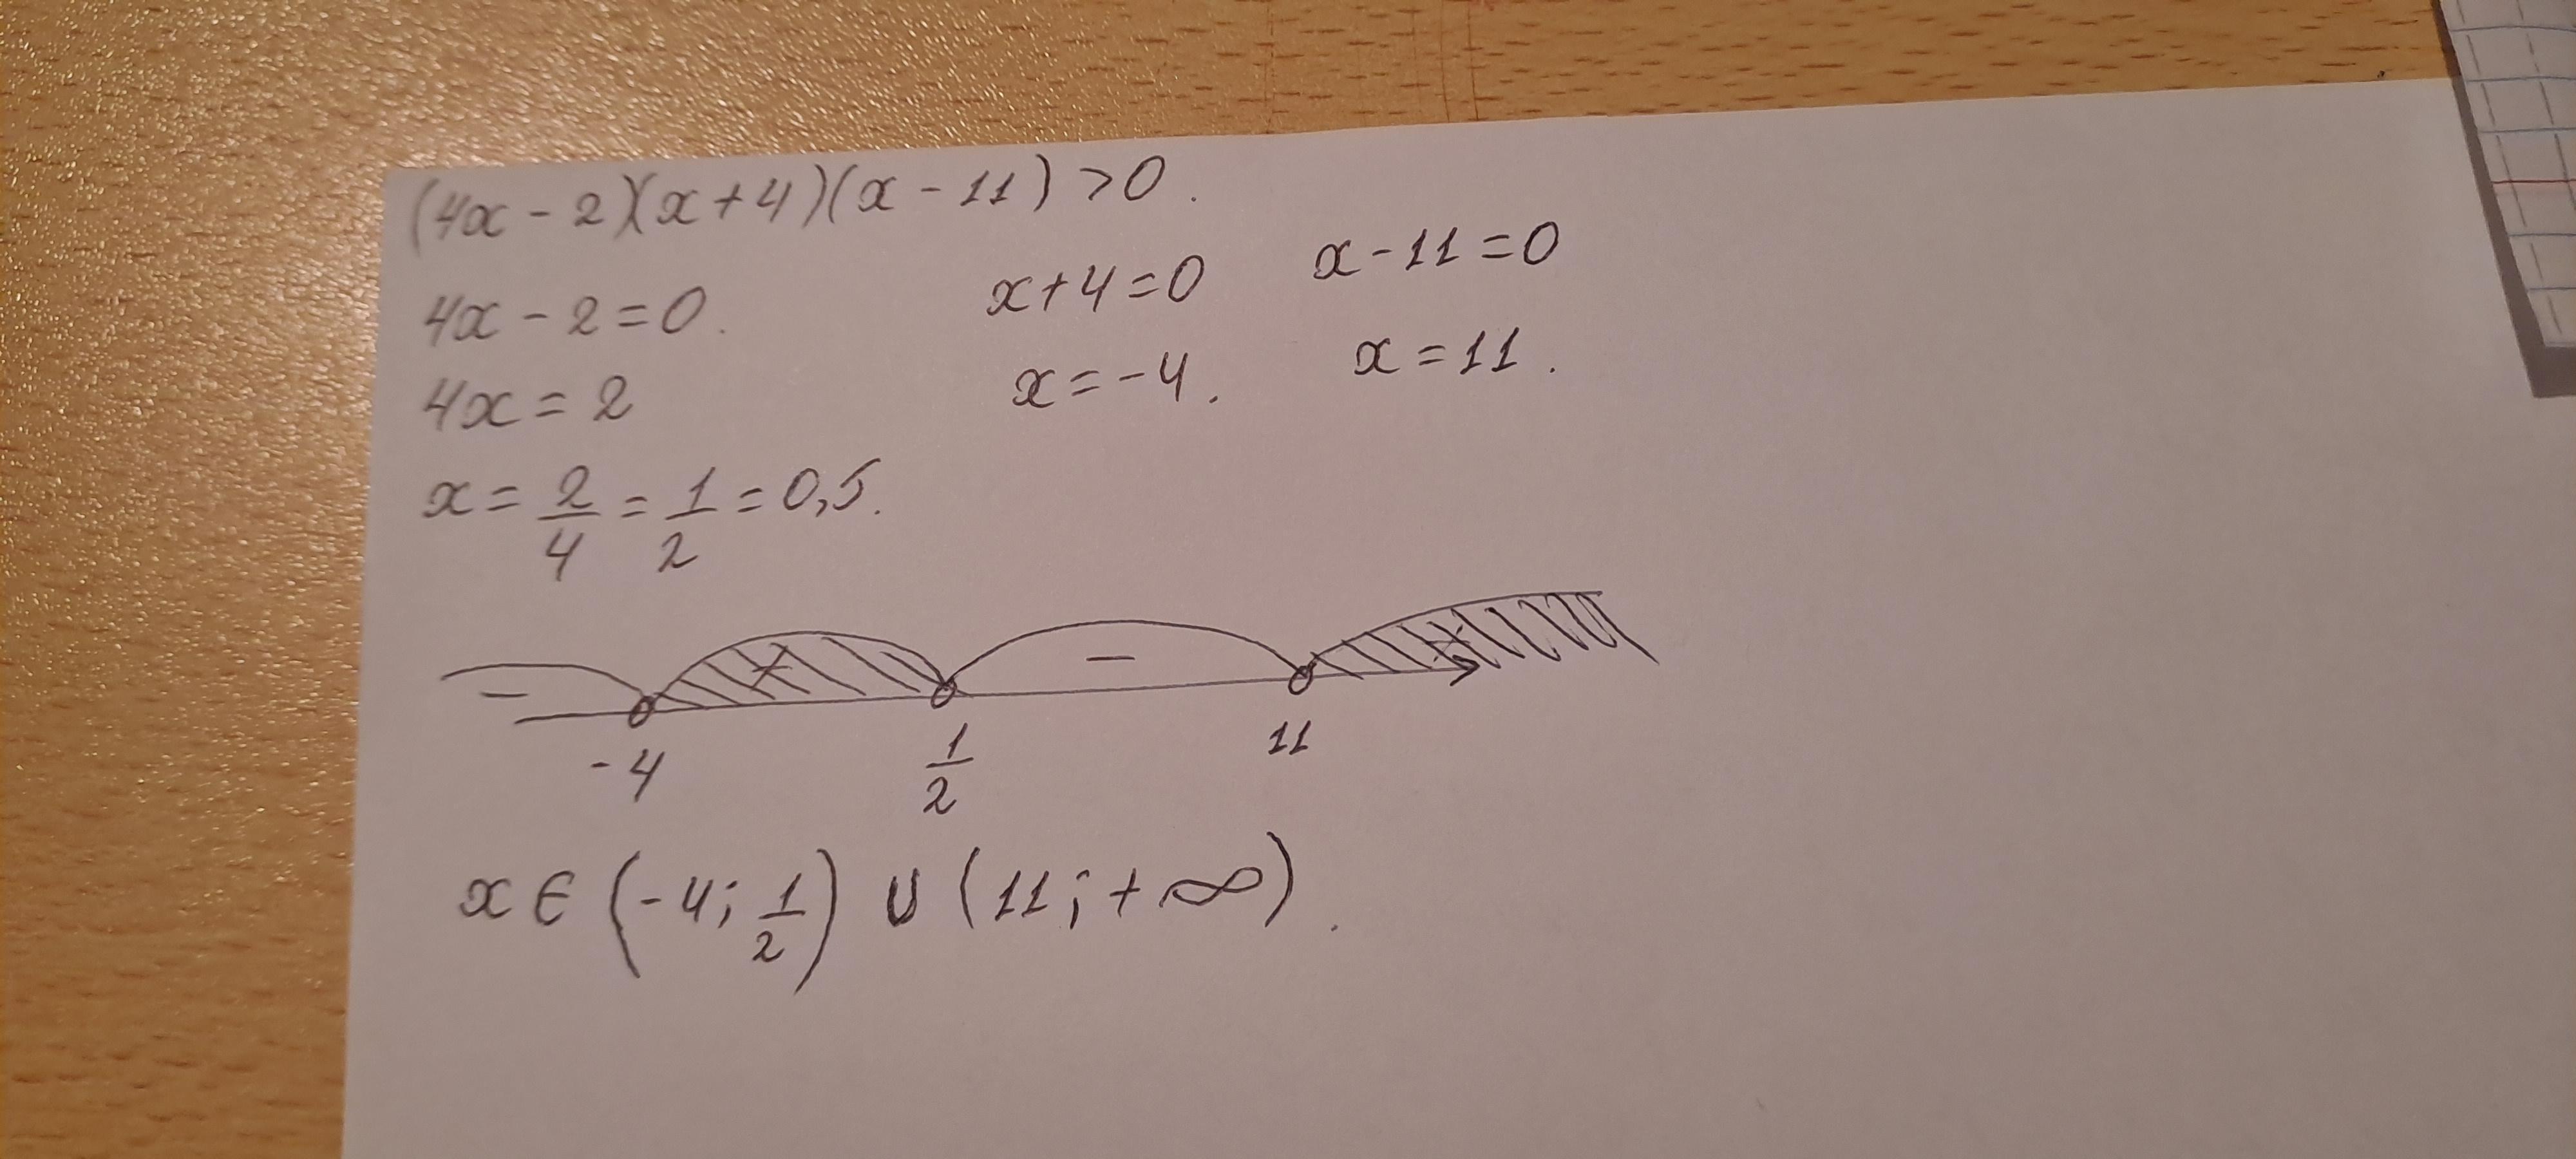 (4x - 2)(x + 4)(x - 11) > 0.
4x - 2 = 0. x + 4 = 0 x - 11 = 0
4x = 2 x = -4. x = 11.
x = 2/4 = 1/2 = 0,5.
- + - +
-4 1/2 11
x ∈ (-4; 1/2) ∪ (11; +∞).